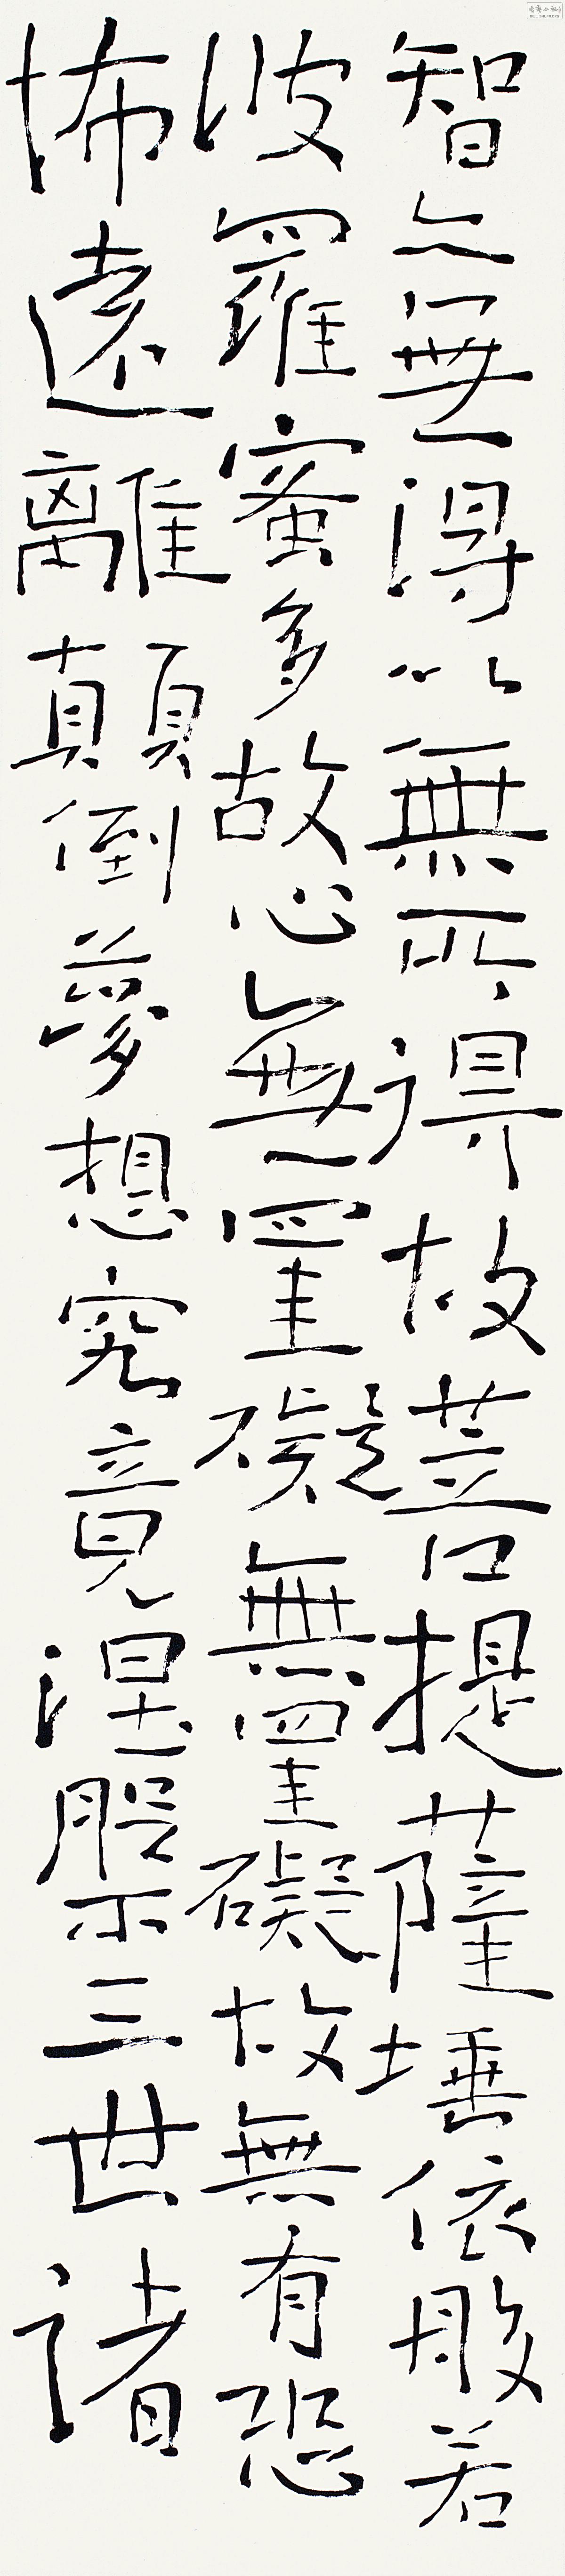 智亦無得以無所得故菩提薩埵依般若
波羅蜜多故心無罣礙無罣礙故無有恐
怖遠離顛倒夢想究竟涅槃三世諸